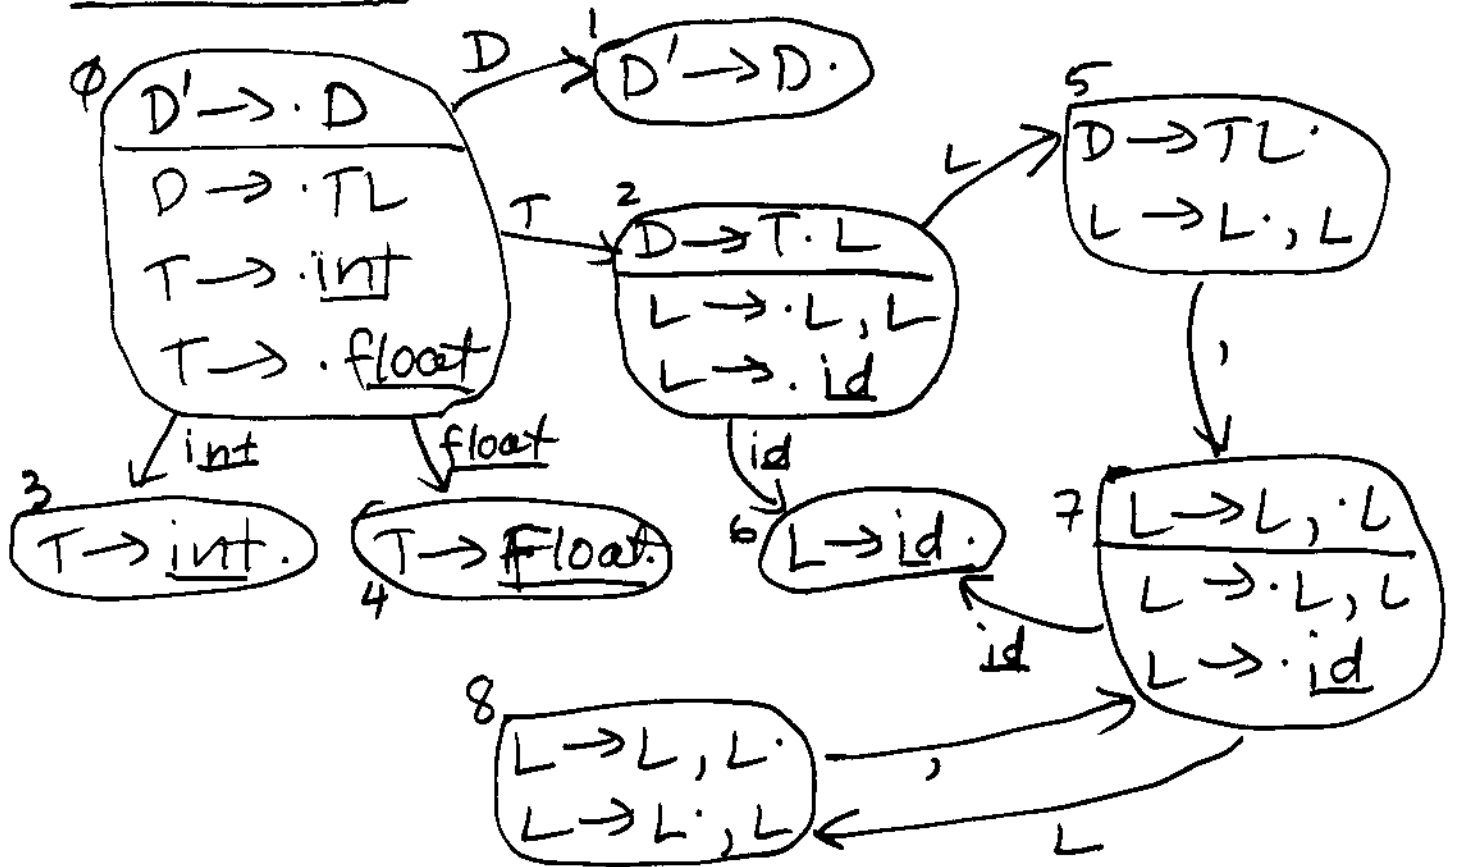 0
D' → · D
D → · TL
T → · int
T → · float
D
1
D' → D ·
T
2
D → T · L
L → · L , L
L → · id
L
5
D → TL ·
L → L · , L
,
int
float
id
3
T → int ·
4
T → Float ·
6
L → id ·
id
7
L → L , · L
L → · L , L
L → · id
8
L → L , L ·
L → L · , L
,
L